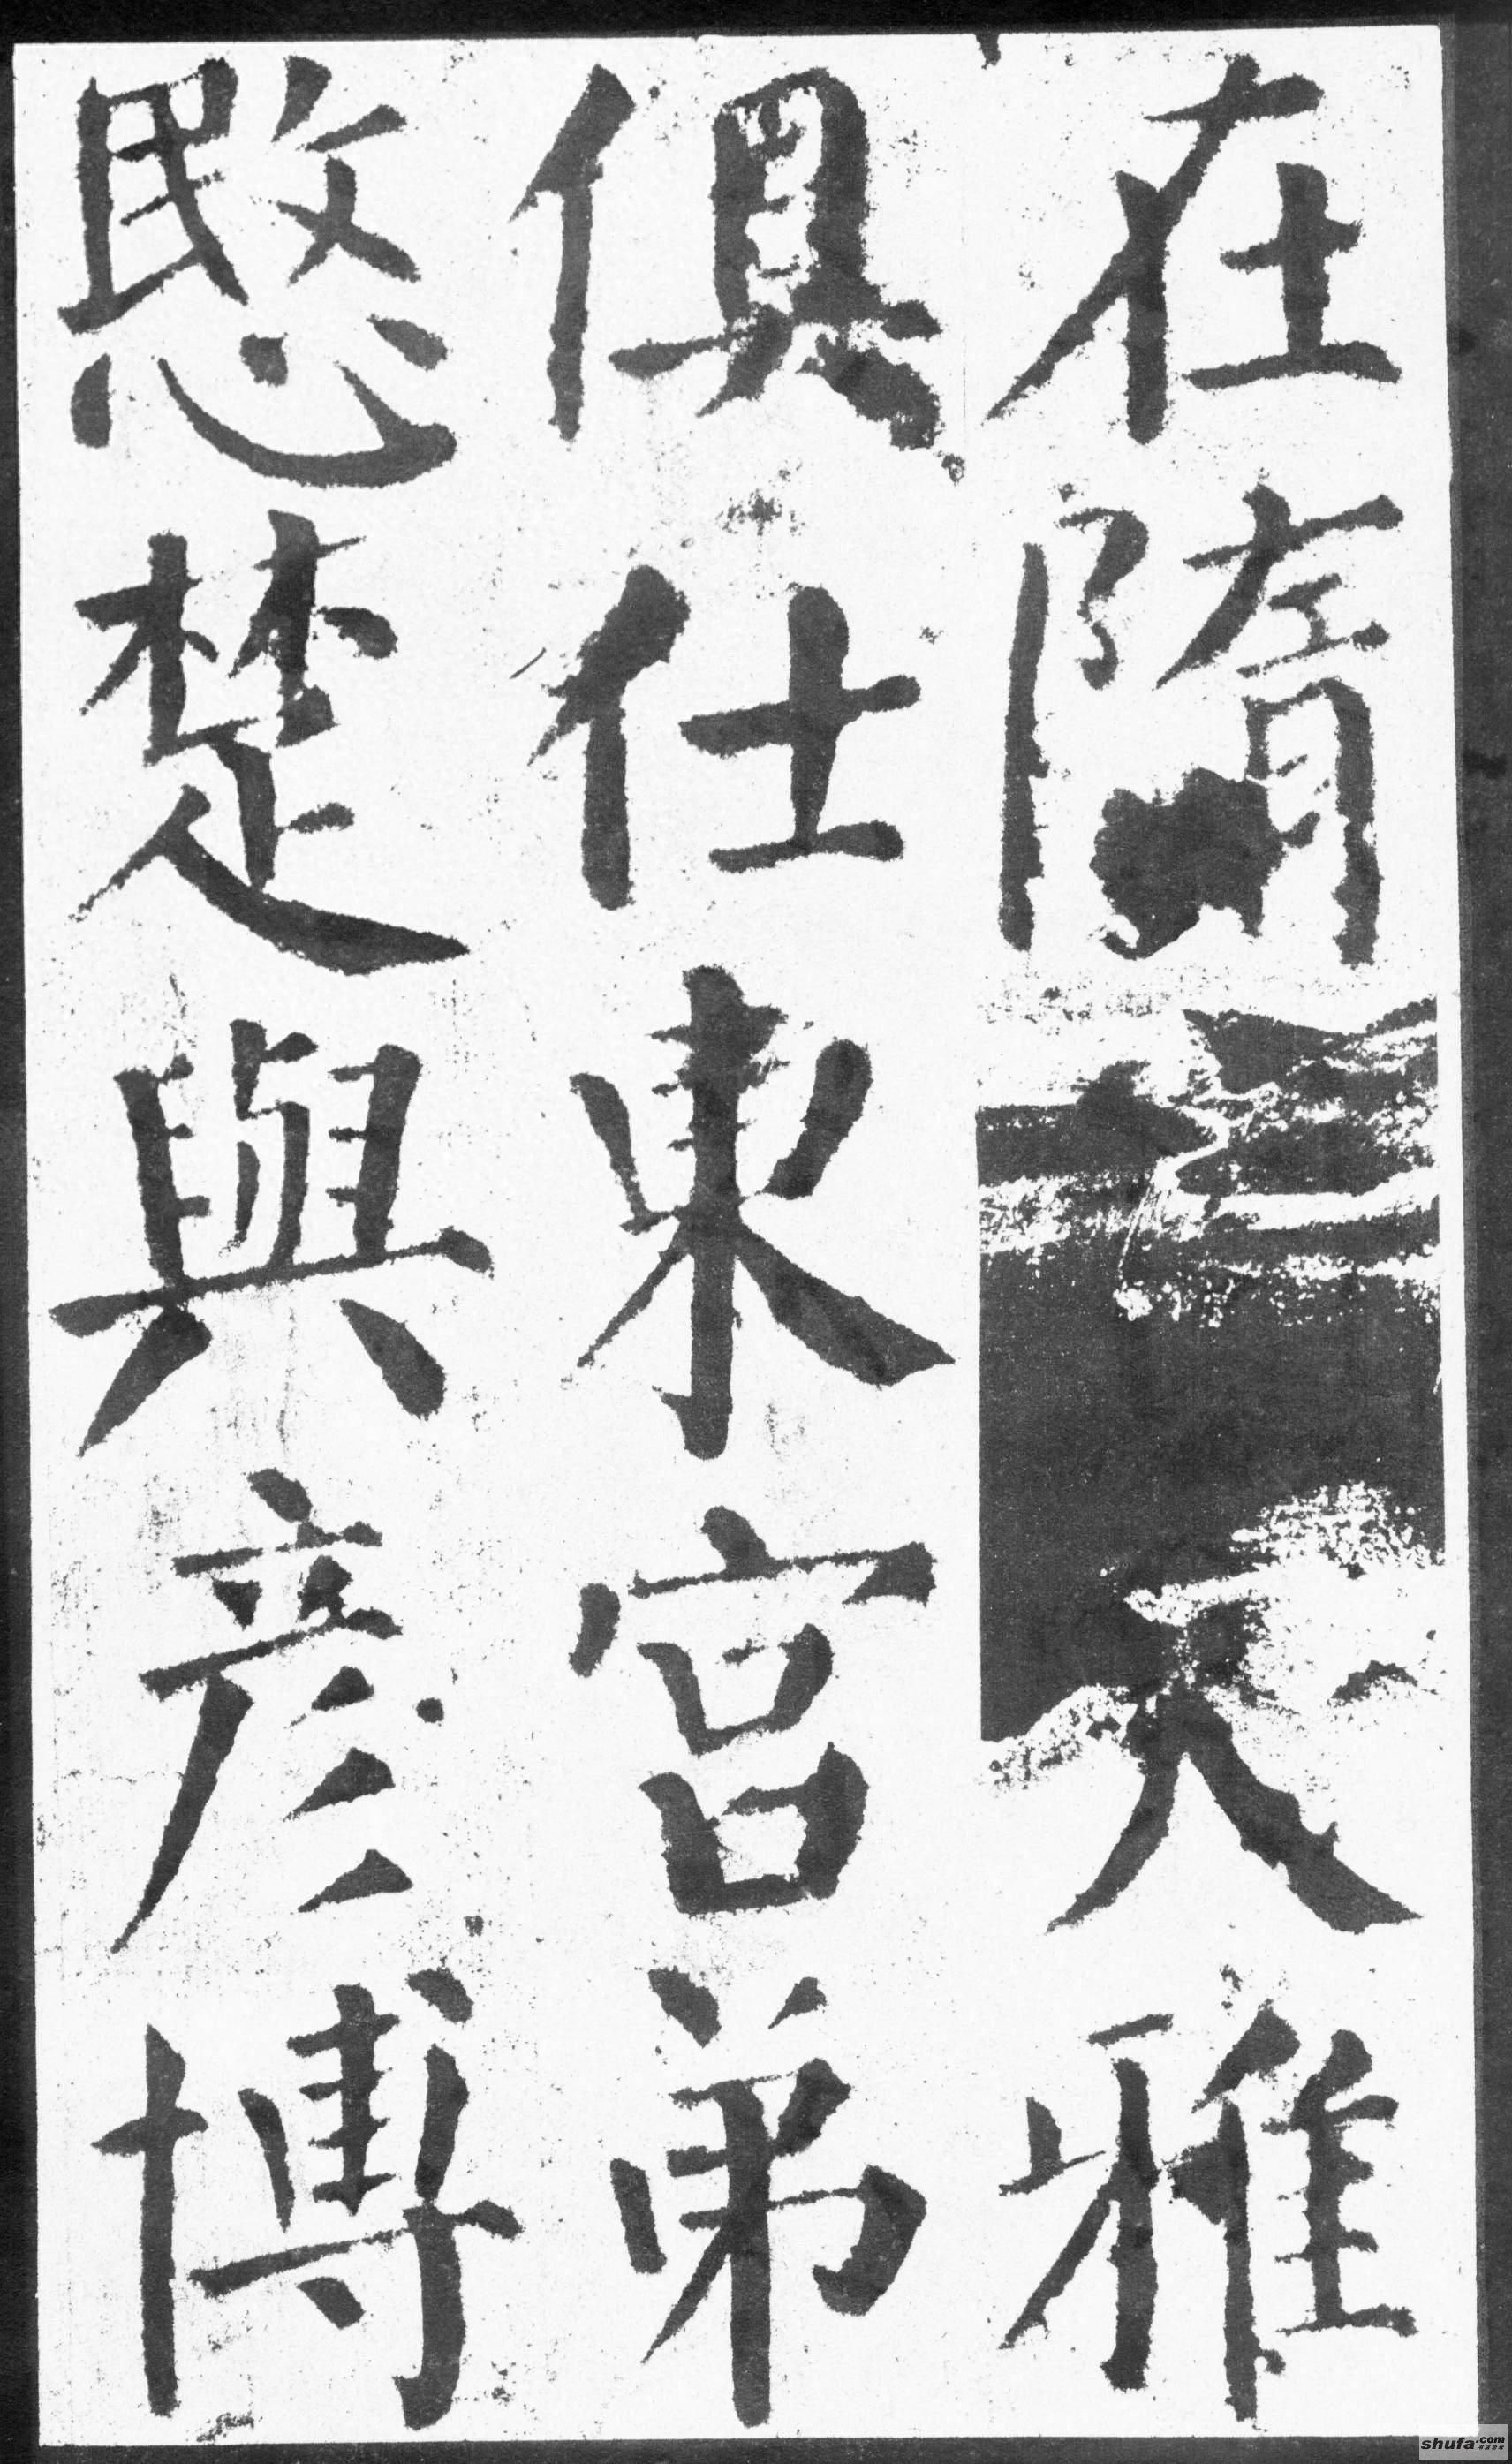 在隋大雅
俱仕東宮弟
愍楚與彥博
shufa.com